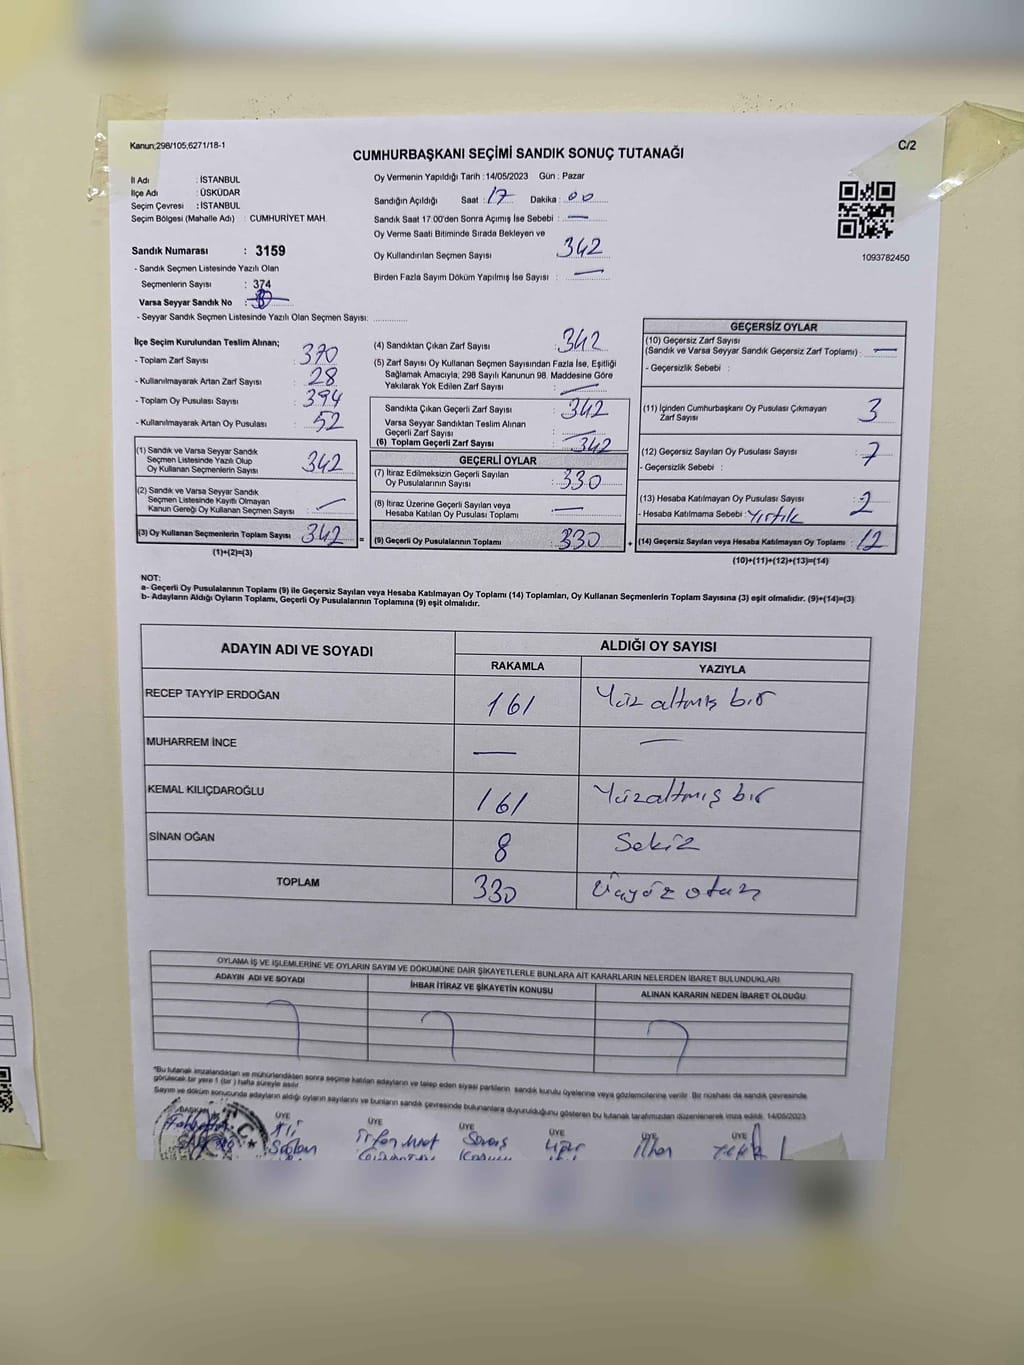 Kanun;298/105,6271/18-1
C/2
CUMHURBAŞKANI SEÇİMİ SANDIK SONUÇ TUTANAĞI
İl Adı : İSTANBUL
İlçe Adı : ÜSKÜDAR
Seçim Çevresi : İSTANBUL
Seçim Bölgesi (Mahalle Adı) : CUMHURİYET MAH.
Sandık Numarası : 3159
- Sandık Seçmen Listesinde Yazılı Olan
Seçmenlerin Sayısı : 374
Varsa Seyyar Sandık No :
- Seyyar Sandık Seçmen Listesinde Yazılı Olan Seçmen Sayısı: ............
Oy Vermenin Yapıldığı Tarih : 14/05/2023 Gün : Pazar
Sandığın Açıldığı Saat : 17 Dakika : 00
Sandık Saat 17.00'den Sonra Açımış İse Sebebi : —
Oy Verme Saati Bitiminde Sırada Bekleyen ve
Oy Kullandırılan Seçmen Sayısı : 342
Birden Fazla Sayım Döküm Yapılmış İse Sayısı : —
1093782450
İlçe Seçim Kurulundan Teslim Alınan;
- Toplam Zarf Sayısı : 370
- Kullanılmayarak Artan Zarf Sayısı : 28
- Toplam Oy Pusulası Sayısı : 394
- Kullanılmayarak Artan Oy Pusulası : 52
(1) Sandık ve Varsa Seyyar Sandık
Seçmen Listesinde Yazılı Olup
Oy Kullanan Seçmenlerin Sayısı : 342
(2) Sandık ve Varsa Seyyar Sandık
Seçmen Listesinde Kayıtlı Olmayan
Kanun Gereği Oy Kullanan Seçmen Sayısı : —
(3) Oy Kullanan Seçmenlerin Toplam Sayısı : 342
(1)+(2)=(3)
(4) Sandıktan Çıkan Zarf Sayısı : 342
(5) Zarf Sayısı Oy Kullanan Seçmen Sayısından Fazla İse, Eşitliği
Sağlamak Amacıyla, 298 Sayılı Kanunun 98. Maddesine Göre
Yakılarak Yok Edilen Zarf Sayısı : —
Sandıkta Çıkan Geçerli Zarf Sayısı : 342
Varsa Seyyar Sandıktan Teslim Alınan
Geçerli Zarf Sayısı : —
(6) Toplam Geçerli Zarf Sayısı : 342
GEÇERLİ OYLAR
(7) İtiraz Edilmeksizin Geçerli Sayılan
Oy Pusulalarının Sayısı : 330
(8) İtiraz Üzerine Geçerli Sayılan veya
Hesaba Katılan Oy Pusulası Toplamı : —
(9) Geçerli Oy Pusulalarının Toplamı : 330
GEÇERSİZ OYLAR
(10) Geçersiz Zarf Sayısı
(Sandık ve Varsa Seyyar Sandık Geçersiz Zarf Toplamı) : —
- Geçersizlik Sebebi :
(11) İçinden Cumhurbaşkanı Oy Pusulası Çıkmayan
Zarf Sayısı : 3
(12) Geçersiz Sayılan Oy Pusulası Sayısı : 7
- Geçersizlik Sebebi :
(13) Hesaba Katılmayan Oy Pusulası Sayısı : 2
- Hesaba Katılmama Sebebi : Yırtık
(14) Geçersiz Sayılan veya Hesaba Katılmayan Oy Toplamı : 12
(10)+(11)+(12)+(13)=(14)
NOT:
a- Geçerli Oy Pusulalarının Toplamı (9) ile Geçersiz Sayılan veya Hesaba Katılmayan Oy Toplamı (14) Toplamları, Oy Kullanan Seçmenlerin Toplam Sayısına (3) eşit olmalıdır. (9)+(14)=(3)
b- Adayların Aldığı Oyların Toplamı, Geçerli Oy Pusulalarının Toplamına (9) eşit olmalıdır.
ADAYIN ADI VE SOYADI ALDIĞI OY SAYISI
RAKAMLA YAZIYLA
RECEP TAYYİP ERDOĞAN 161 Yüz altmış bir
MUHARREM İNCE — —
KEMAL KILIÇDAROĞLU 161 Yüzaltmış bir
SİNAN OĞAN 8 Sekiz
TOPLAM 330 Üçyüz otuz
OYLAMA İŞ VE İŞLEMLERİNE VE OYLARIN SAYIM VE DÖKÜMÜNE DAİR ŞİKAYETLERLE BUNLARA AİT KARARLARIN NELERDEN İBARET BULUNDUKLARI
ADAYIN ADI VE SOYADI İHBAR İTİRAZ VE ŞİKAYETİN KONUSU ALINAN KARARIN NEDEN İBARET OLDUĞU
*Bu tutanak imzalandıktan ve mühürlendikten sonra seçime katılan adayların ve talep eden siyasi partilerin sandık kurulu üyelerine veya gözlemcilerine verilir. Bir nüshası da sandık çevresinde
görülecek bir yere 1 (bir) hafta süreyle asılır
Sayım ve döküm sonucunda adayların aldığı oyların sayılarını ve bunların sandık çevresinde bulunanlara duyurulduğunu gösteren bu tutanak tarafımızdan düzenlenerek imza edildi. 14/05/2023
BAŞKAN ÜYE ÜYE ÜYE ÜYE ÜYE ÜYE
Ali Savaş İlhan